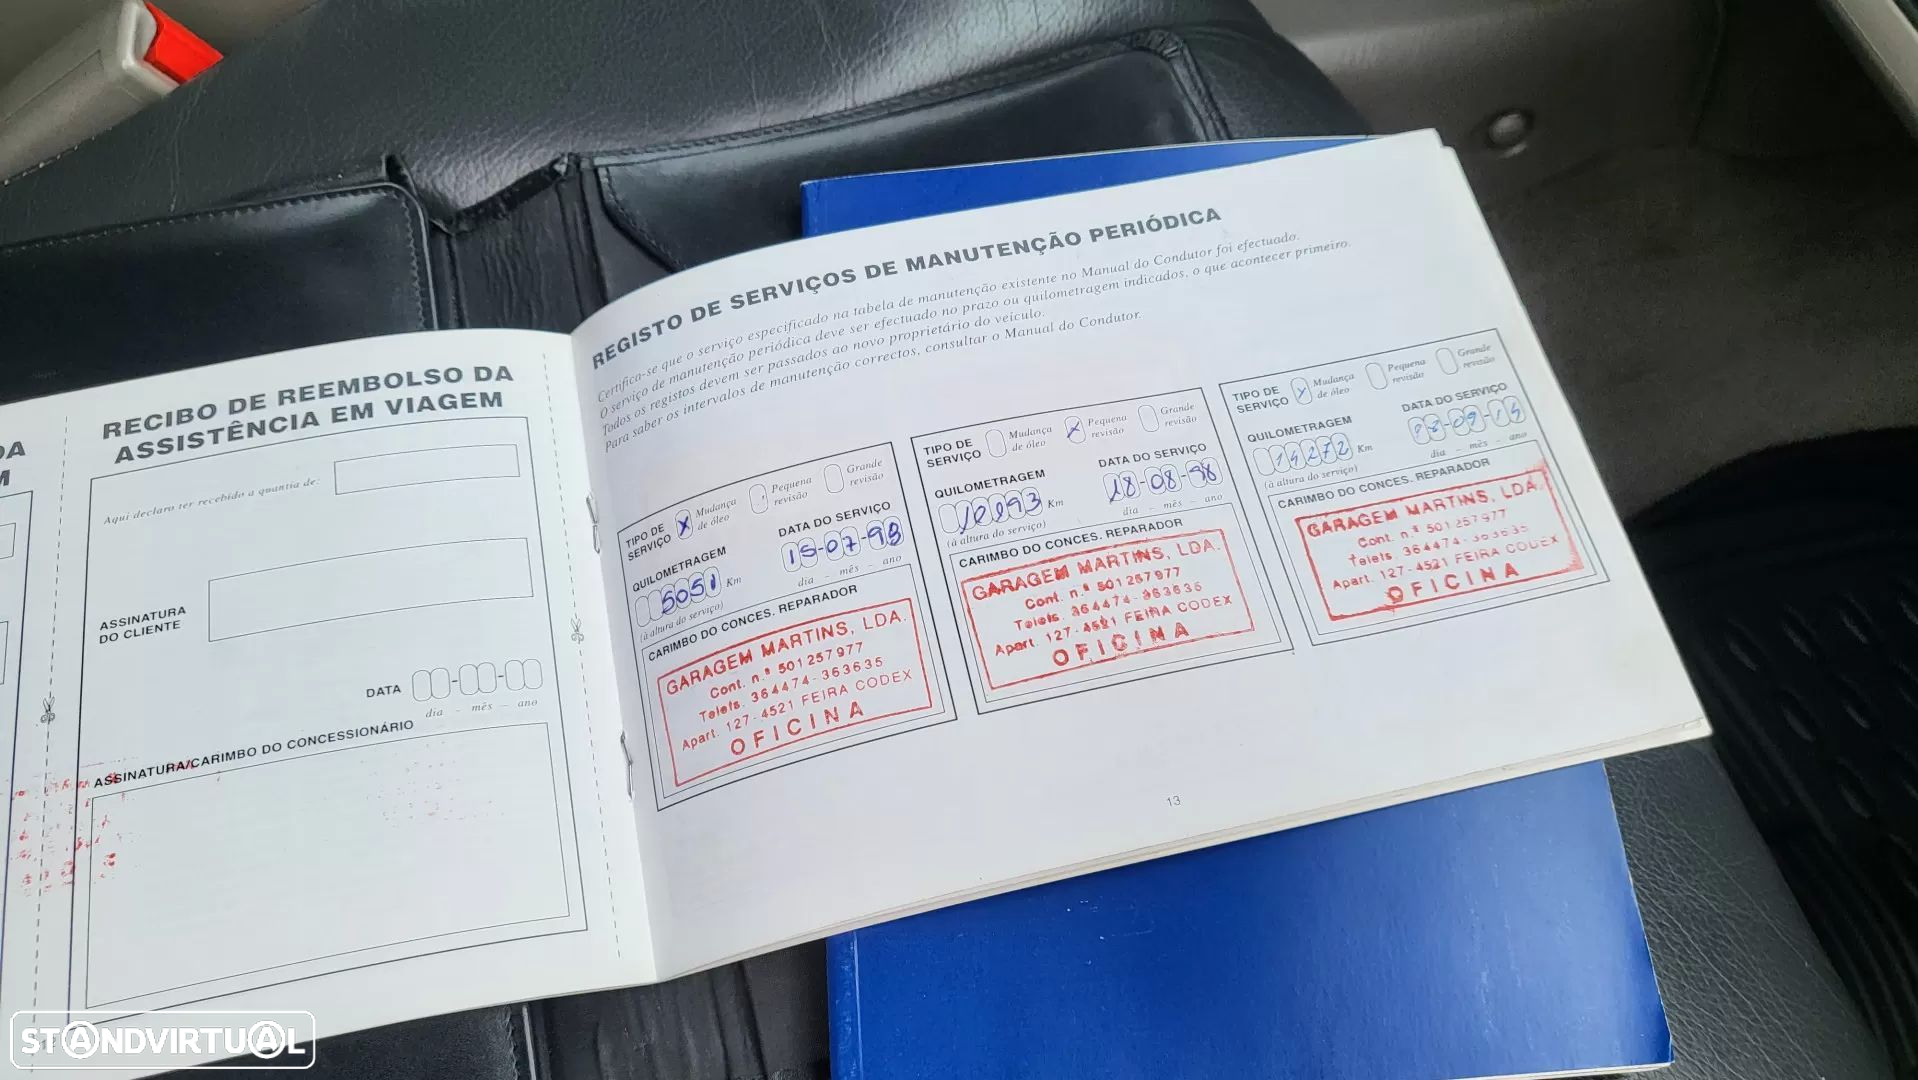 DA
M
RECIBO DE REEMBOLSO DA
ASSISTÊNCIA EM VIAGEM
Aqui declaro ter recebido a quantia de:
ASSINATURA
DO CLIENTE
DATA
dia - mês - ano
ASSINATURA/CARIMBO DO CONCESSIONÁRIO
REGISTO DE SERVIÇOS DE MANUTENÇÃO PERIÓDICA
Certifica-se que o serviço especificado na tabela de manutenção existente no Manual do Condutor foi efectuado.
O serviço de manutenção periódica deve ser efectuado no prazo ou quilometragem indicados, o que acontecer primeiro.
Todos os registos devem ser passados ao novo proprietário do veículo.
Para saber os intervalos de manutenção correctos, consultar o Manual do Condutor.
TIPO DE SERVIÇO X Mudança de óleo Pequena revisão Grande revisão
QUILOMETRAGEM DATA DO SERVIÇO
5051 Km 15-07-98
(à altura do serviço) dia - mês - ano
CARIMBO DO CONCES. REPARADOR
GARAGEM MARTINS, LDA.
Cont. n.º 501257977
Telefs. 364474-363635
Apart. 127-4521 FEIRA CODEX
OFICINA
TIPO DE SERVIÇO Mudança de óleo X Pequena revisão Grande revisão
QUILOMETRAGEM DATA DO SERVIÇO
Km 18-08-98
(à altura do serviço) dia - mês - ano
CARIMBO DO CONCES. REPARADOR
GARAGEM MARTINS, LDA.
Cont. n.º 501257977
Telefs. 364474-363635
Apart. 127-4521 FEIRA CODEX
OFICINA
TIPO DE SERVIÇO X Mudança de óleo Pequena revisão Grande revisão
QUILOMETRAGEM DATA DO SERVIÇO
14272 Km
(à altura do serviço) dia - mês - ano
CARIMBO DO CONCES. REPARADOR
GARAGEM MARTINS, LDA.
Cont. n.º 501257977
Telefs. 364474-363635
Apart. 127-4521 FEIRA CODEX
OFICINA
13
STANDVIRTUAL